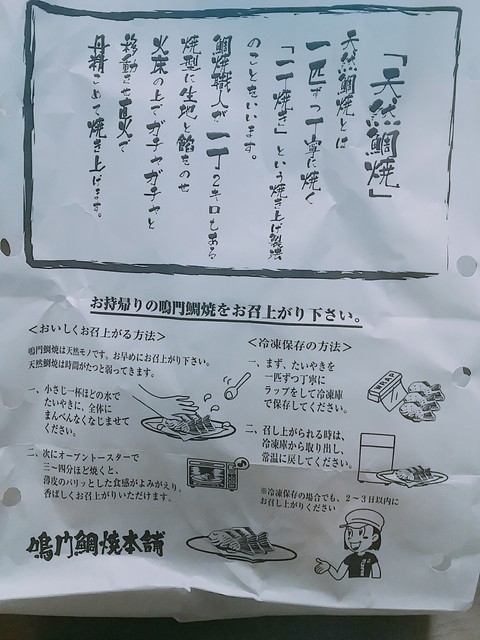 「天然鯛焼」
天然鯛焼とは
一匹ずつ丁寧に焼く
「一丁焼き」という焼き上げ製法
のことをいいます。
鯛焼職人が一丁2キロもある
焼型に生地と餡をのせ
火床の上でガチャガチャと
移動させ直火で
丹精こめて焼き上げます。
お持帰りの鳴門鯛焼をお召上がり下さい。
＜おいしくお召上がる方法＞
鳴門鯛焼は天然モノです。お早めにお召上がり下さい。
天然鯛焼は時間がたつと弱ってきます。
一、小さじ一杯ほどの水で
たいやきに、全体に
まんべんなくなじませて
ください。
二、次にオーブントースターで
三～四分ほど焼くと、
薄皮のパリッとした食感がよみがえり、
香ばしくお召上がりいただけます。
＜冷凍保存の方法＞
一、まず、たいやきを
一匹ずつ丁寧に
ラップをして冷凍庫
で保存してください。
二、召し上がられる時は、
冷凍庫から取り出し、
常温に戻してください。
※冷凍保存の場合でも、2～3日以内に
お召し上がりください
鳴門鯛焼本舗